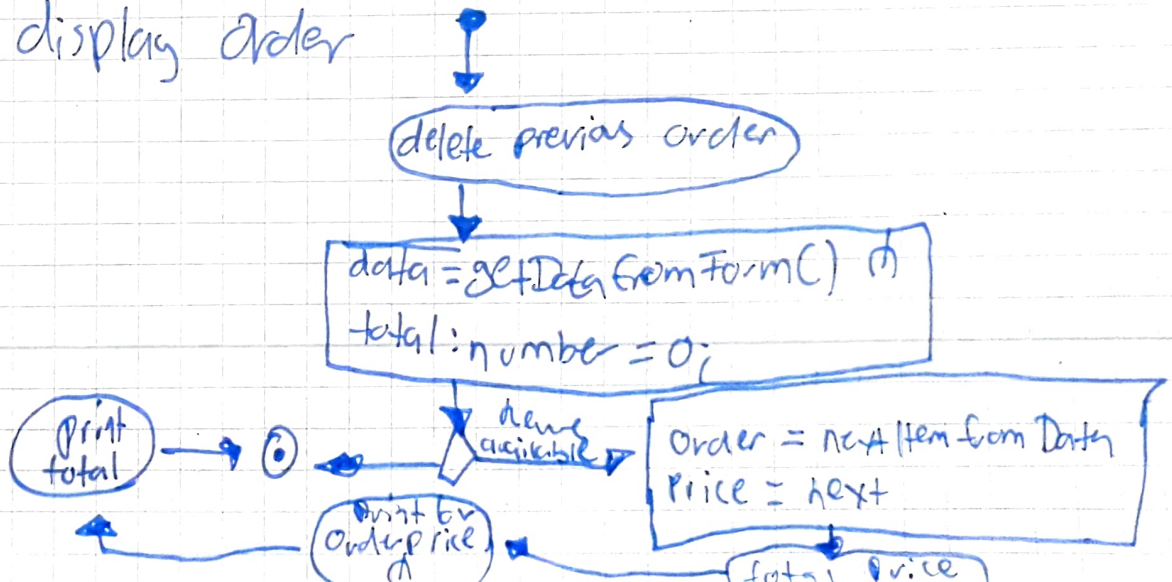 display Order
delete previous order
data = getDataFromForm()
total : number = 0;
order = nextItem from Data
Price = next
print
total
print
Order price
total price